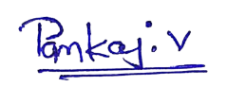 Pankaj. V